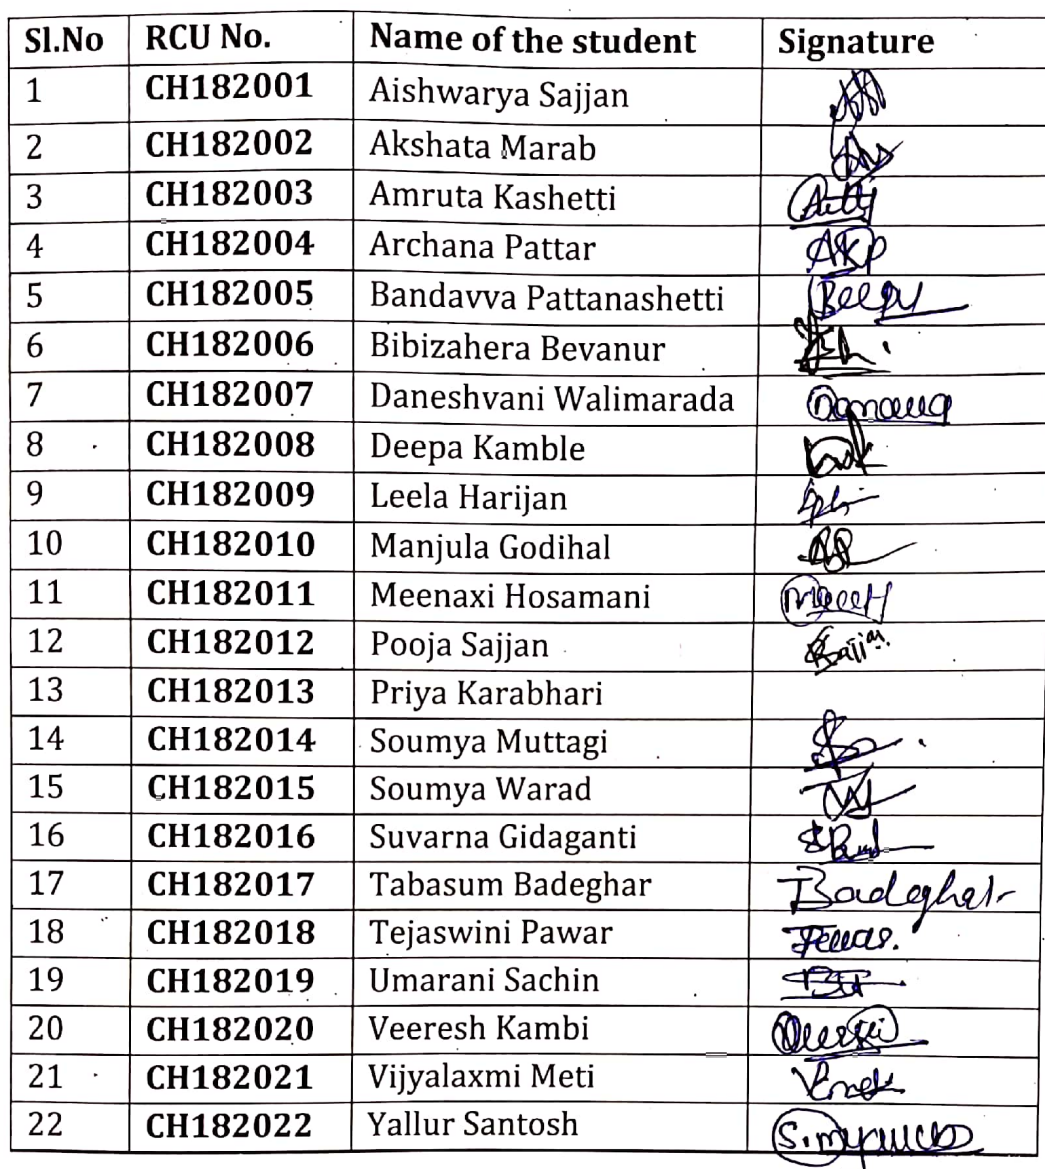 Sl.No RCU No. Name of the student Signature
1 CH182001 Aishwarya Sajjan
2 CH182002 Akshata Marab
3 CH182003 Amruta Kashetti
4 CH182004 Archana Pattar AKP
5 CH182005 Bandavva Pattanashetti
6 CH182006 Bibizahera Bevanur
7 CH182007 Daneshvani Walimarada
8 CH182008 Deepa Kamble
9 CH182009 Leela Harijan
10 CH182010 Manjula Godihal
11 CH182011 Meenaxi Hosamani
12 CH182012 Pooja Sajjan
13 CH182013 Priya Karabhari
14 CH182014 Soumya Muttagi
15 CH182015 Soumya Warad
16 CH182016 Suvarna Gidaganti
17 CH182017 Tabasum Badeghar Badeghar
18 CH182018 Tejaswini Pawar
19 CH182019 Umarani Sachin
20 CH182020 Veeresh Kambi
21 CH182021 Vijyalaxmi Meti
22 CH182022 Yallur Santosh